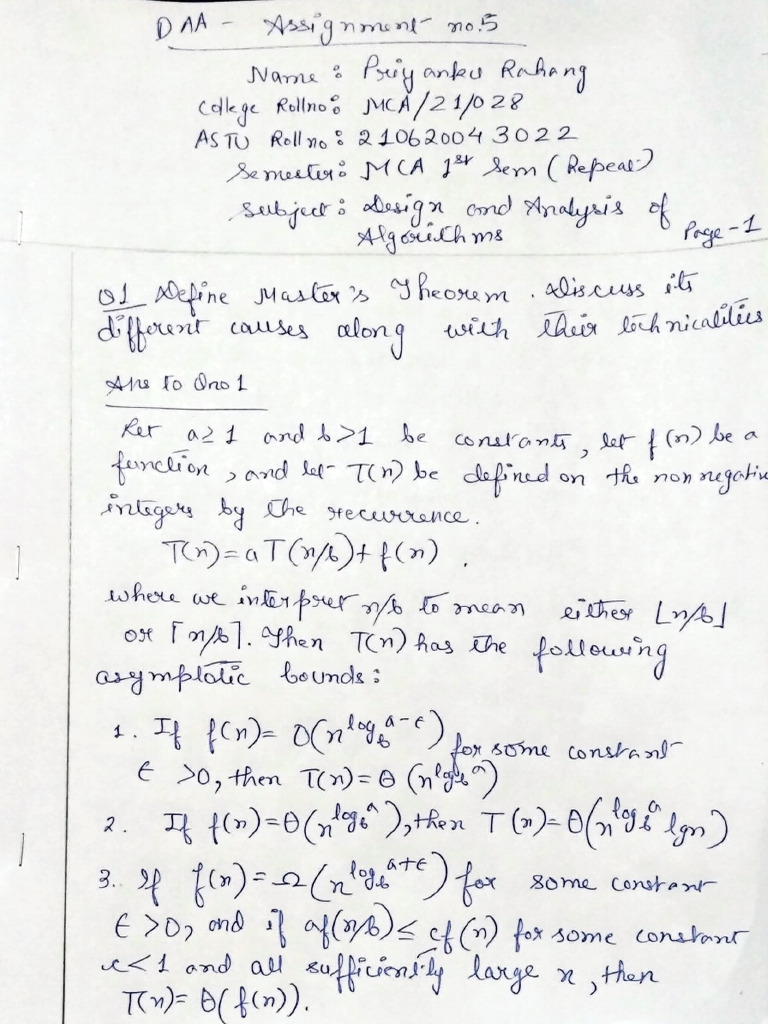 DAA - Assignment no.5
Name : Priyanku Rahang
College Rollno : MCA/21/028
ASTU Roll no : 210620043022
Semester : MCA 1st Sem (Repeat)
Subject : Design and Analysis of
Algorithms
Page-1
Q1 Define Master's Theorem. Discuss its
different causes along with their technicalities
Ans to Qno 1
Let a≥1 and b>1 be constants, let f(n) be a
function, and let T(n) be defined on the nonnegative
integers by the recurrence.
T(n)=aT(n/b)+f(n).
where we interpret n/b to mean either ⌊n/b⌋
or ⌈n/b⌉. Then T(n) has the following
asymptotic bounds:
1. If f(n)= O(n^log_b^a-ϵ) for some constant
ϵ >0, then T(n)=θ (n^lg_b^a)
2. If f(n)=θ(n^log_b^a), then T(n)=θ(n^log_b^a lgn)
3. If f(n)=Ω(n^log_b^a+ϵ) for some constant
ϵ >0, and if af(n/b)≤ cf(n) for some constant
c<1 and all sufficiently large n, then
T(n)= θ(f(n)).